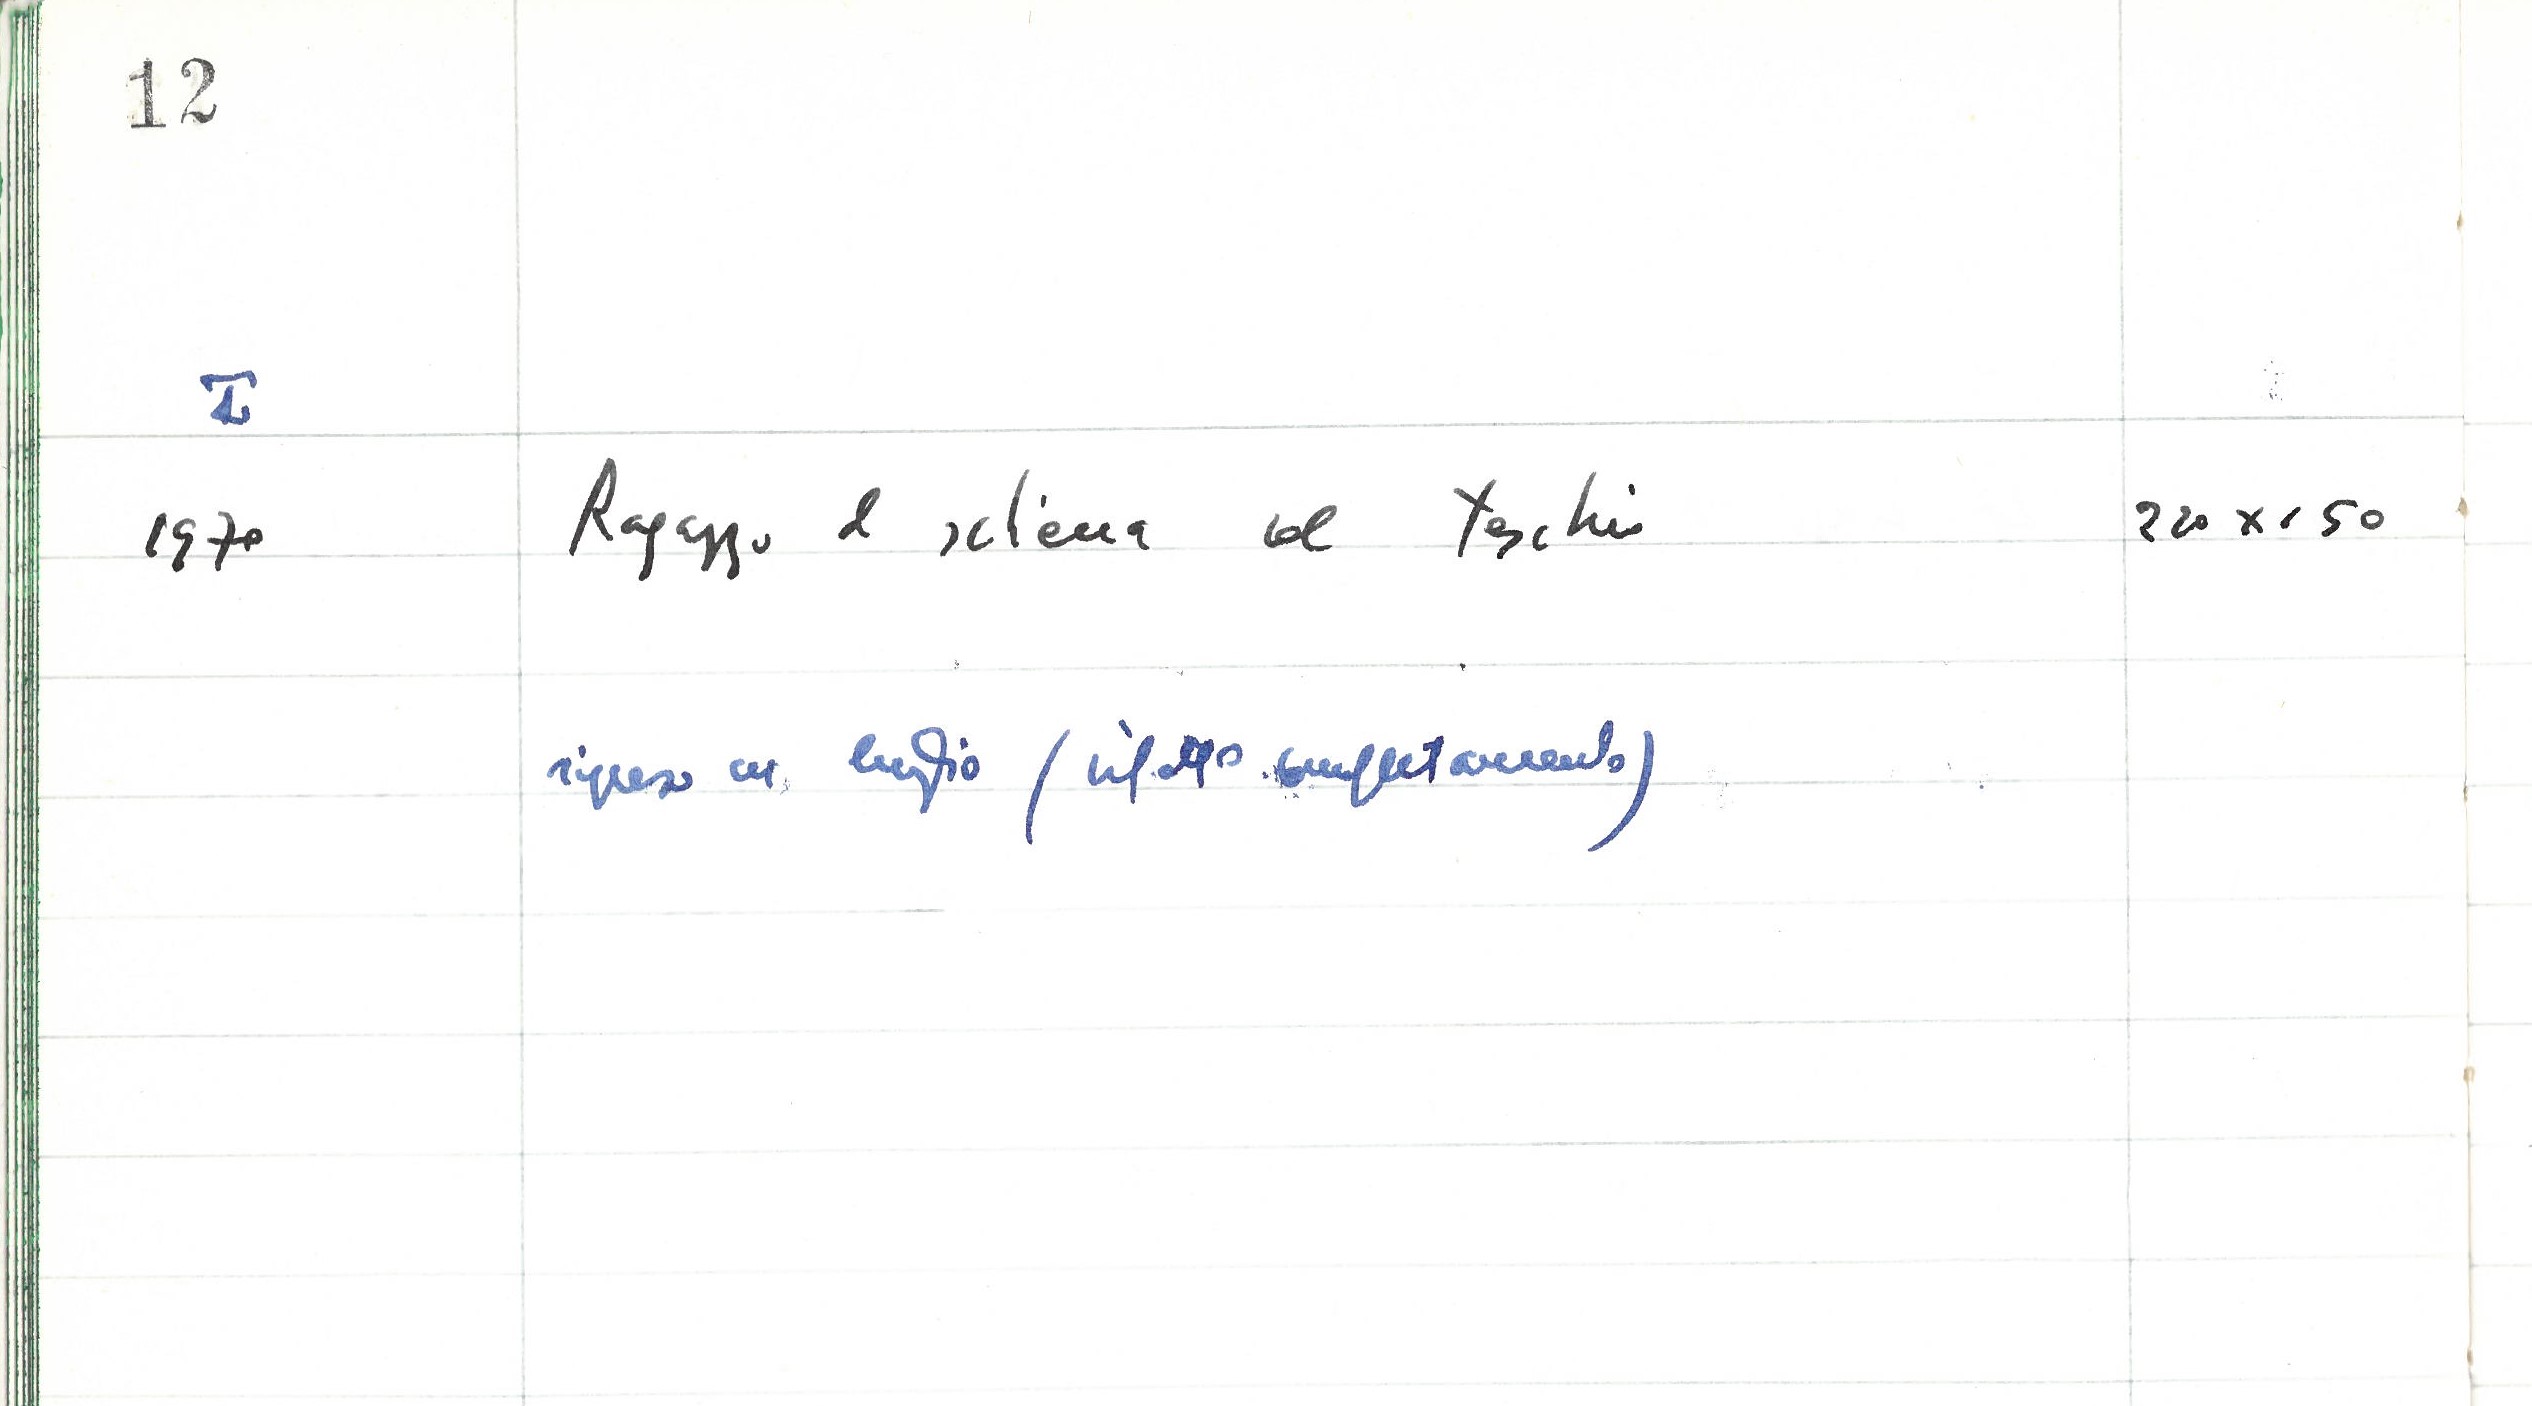 12
I
1970 Ragazzo di schiena col Teschio 220 x 150
ripreso in luglio (rifatto completamente)